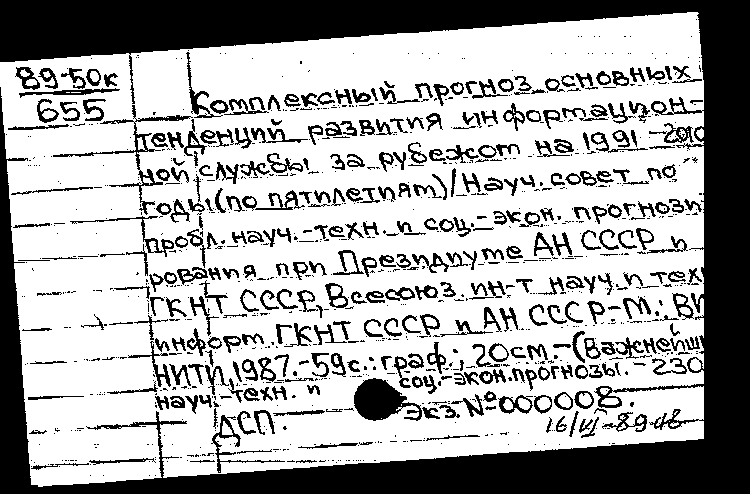 89-50к
655
Комплексный прогноз основных
тенденций развития информацион-
ной службы за рубежом на 1991-2010
годы (по пятилетиям)/Науч. совет по
пробл. науч.-техн. и соц.-экон. прогнози
рования при Президиуме АН СССР и
ГКНТ СССР, Всесоюз. ин-т науч. и техн
информ. ГКНТ СССР и АН СССР.-М.: ВИ
НИТИ, 1987.-59с.: граф.; 20см.-(Важнейши
науч.-техн. и соц.-экон. прогнозы. - 230
Экз. №000008.
ДСП.
16/VI-89